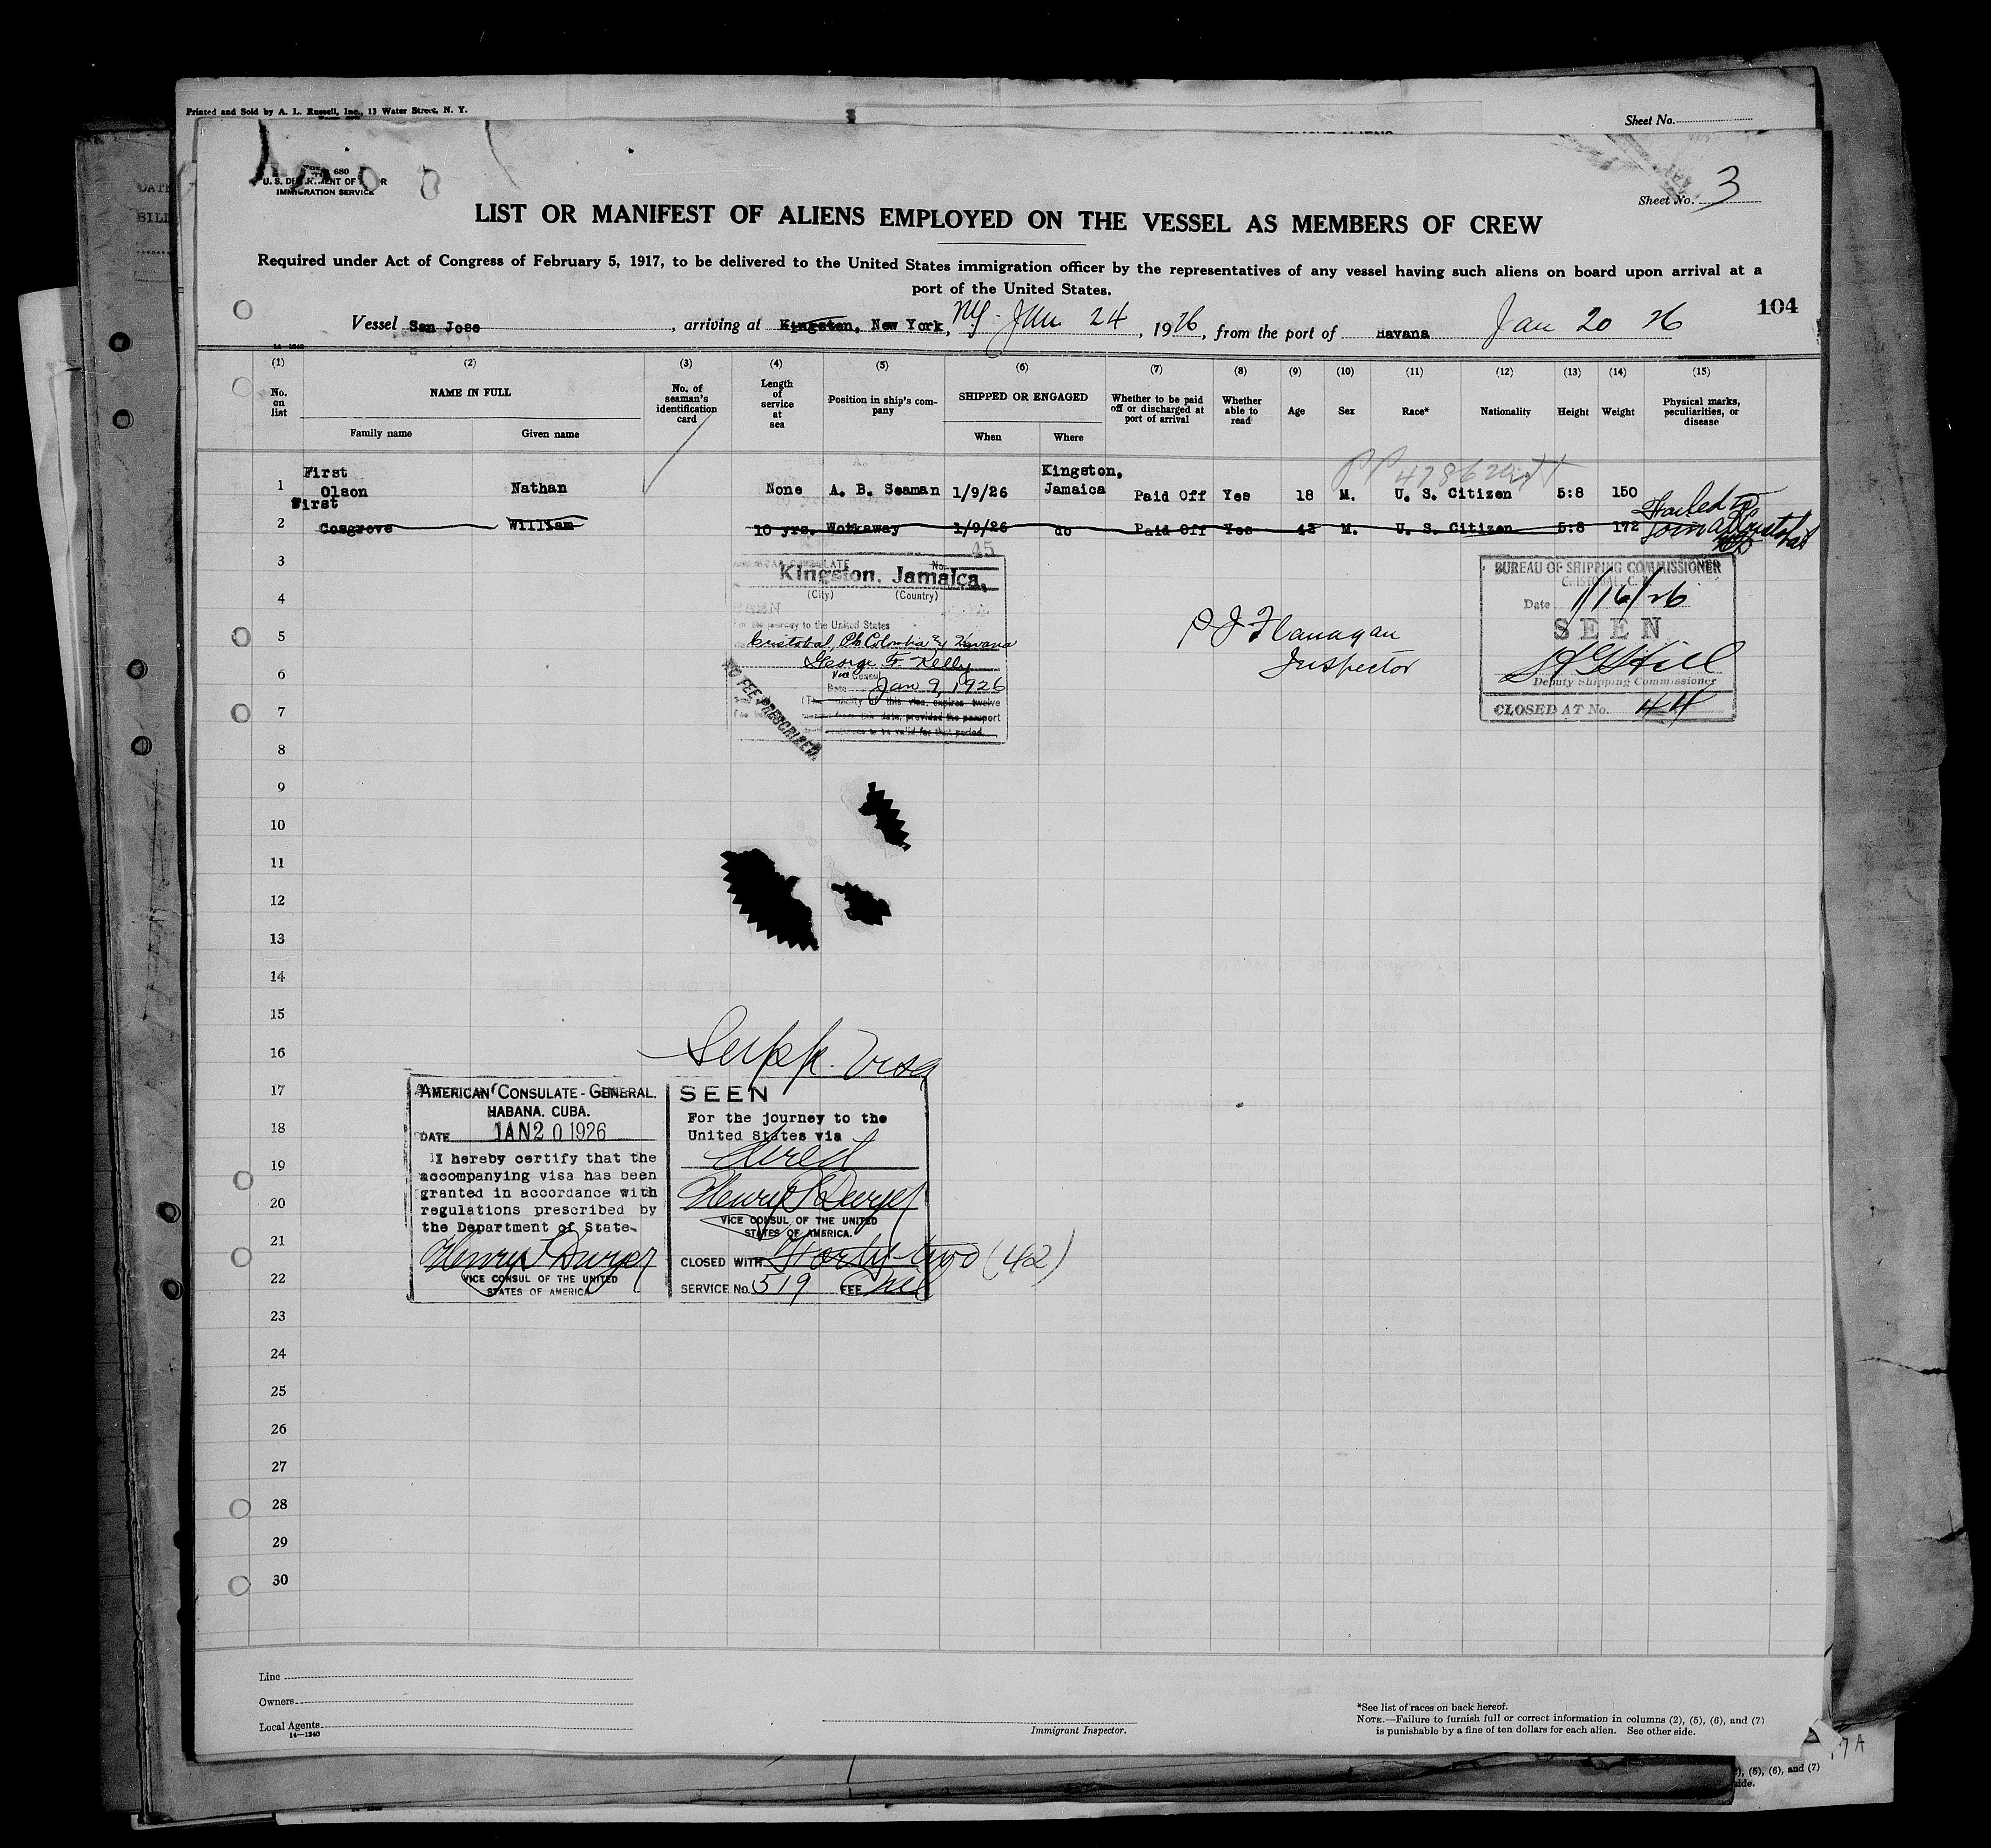 Printed and Sold by A. L. Russell, Inc., 13 Water Street, N. Y.
Sheet No.
680
IMMIGRATION SERVICE
Sheet No. 3
LIST OR MANIFEST OF ALIENS EMPLOYED ON THE VESSEL AS MEMBERS OF CREW
Required under Act of Congress of February 5, 1917, to be delivered to the United States immigration officer by the representatives of any vessel having such aliens on board upon arrival at a
port of the United States.
104
Vessel San Jose, arriving at Kingston, New York, NY. Jan 24, 1926, from the port of Havana Jan 20 26
(1) (2) (3) (4) (5) (6) (7) (8) (9) (10) (11) (12) (13) (14) (15)
No. on list
NAME IN FULL
Family name
Given name
No. of seaman's identification card
Length of service at sea
Position in ship's company
SHIPPED OR ENGAGED
When
Where
Whether to be paid off or discharged at port of arrival
Whether able to read
Age
Sex
Race*
Nationality
Height
Weight
Physical marks, peculiarities, or disease
First
Kingston,
1 Olson Nathan None A. B. Seaman 1/9/26 Jamaica Paid Off Yes 18 M. U. S. Citizen 5:8 150
First
2 Cosgrove William 10 yrs. Workaway 1/9/26 do Paid Off Yes 42 M. U. S. Citizen 5:8 172 Failed to join at Cristobal
3
4
5
6
7
8
9
10
11
12
13
14
15
16
17
18
19
20
21
22
23
24
25
26
27
28
29
30
45
No.
Kingston, Jamaica,
(City) (Country)
For the journey to the United States
Cristobal, Pto Colombia & Havana
George F. Kelly
Vice Consul
Date Jan 9, 1926
validity of this visa expires twelve
from this date, provided the passport
continues to be valid for that period.
NO FEE PRESCRIBED.
P J Flanagan
Inspector
BUREAU OF SHIPPING COMMISSIONER
CRISTOBAL, C. Z.
Date 1/16/26
SEEN
Deputy Shipping Commissioner
CLOSED AT No. 44
Supp. Visa
AMERICAN CONSULATE-GENERAL.
HABANA. CUBA.
DATE JAN 20 1926
I hereby certify that the
accompanying visa has been
granted in accordance with
regulations prescribed by
the Department of State.
VICE CONSUL OF THE UNITED
STATES OF AMERICA
SEEN
For the journey to the
United States via
direct
VICE CONSUL OF THE UNITED
STATES OF AMERICA.
CLOSED WITH Forty-two (42)
SERVICE No. 519 FEE Nil
Line
Owners
Local Agents
14—1240
Immigrant Inspector.
*See list of races on back hereof.
NOTE.—Failure to furnish full or correct information in columns (2), (5), (6), and (7)
is punishable by a fine of ten dollars for each alien. See other side.
(5), (6), and (7)